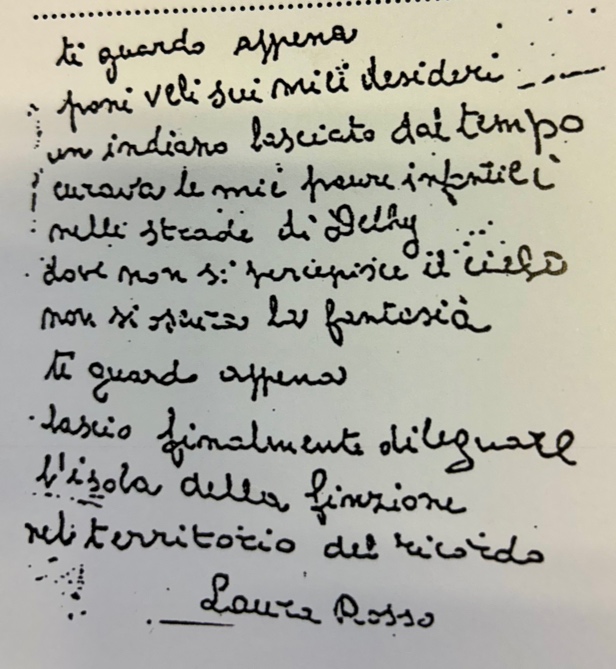 ti guardo appena
poni veli sui miei desideri
un indiano lasciato dal tempo
curava le mie paure infantili
nelle strade di Delhy
dove non si percepisce il cielo
non si la fantasia
ti guardo appena
lascio finalmente dileguare
l'isola della finzione
nel territorio del ricordo
Laura Rosso